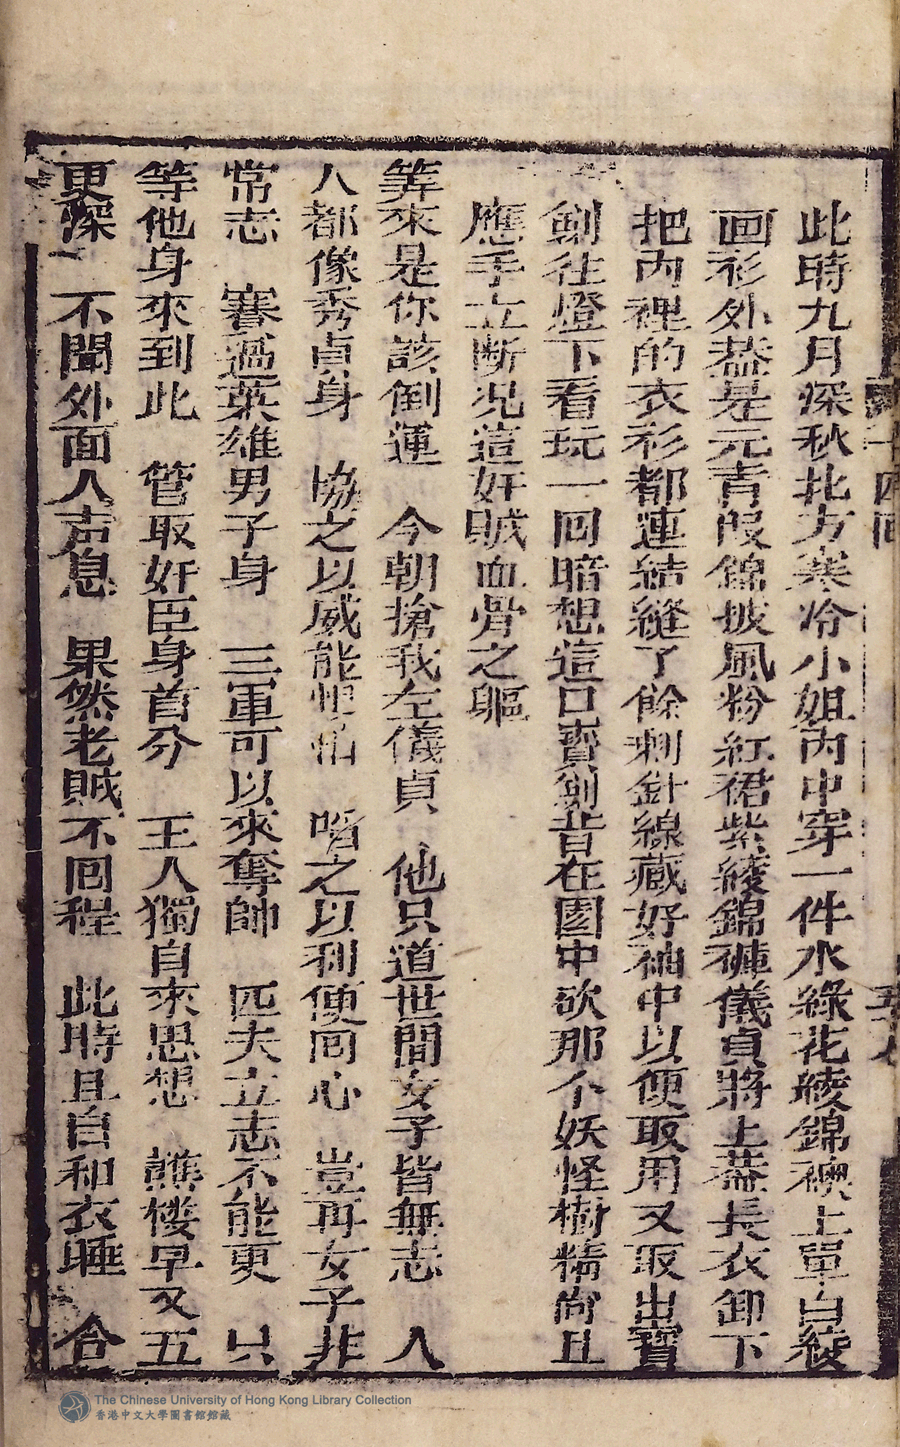 此時九月深秋北方寒冷小姐內中穿一件水綠花綾錦襖上單白綾
画衫外葢是元青叚錦披風粉紅裙紫綾錦褲儀貞將上葢長衣卸下
把內裡的衣衫都連結縫了餘剩針線藏好袖中以便取用又取出寶
劍往燈下看玩一回暗想這口寳劍昔在園中砍那个妖怪樹精尙且
應手立断况這奸賊血骨之軀
筭來是你該倒運 今朝搶我左儀貞 他只道世間女子皆無志 人
人都像秀貞身 協之以威能怕 㗖之以利便囘心 豈再女子非
常志 賽過英雄男子身 三軍可以來奪帥 匹夫立志不能更 只
等他身來到此 管取奸臣身首分 王人獨自來思想 譙楼早又五
更深 不聞外面人声息 果然老賊不囘程 此時且自和衣睡 合
十四回
The Chinese University of Hong Kong Library Collection
香港中文大學圖書館館藏